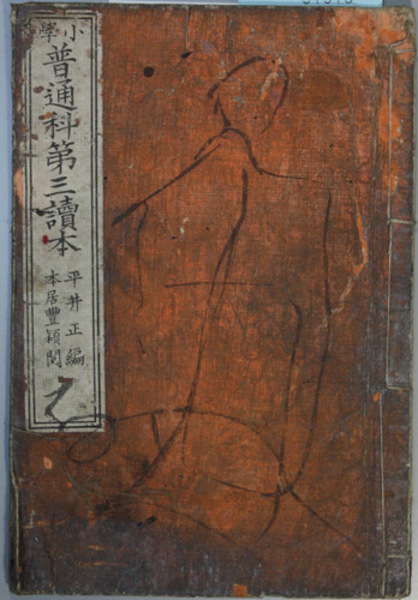 小學
普通科第三讀本
平井正編
本居豐穎閲